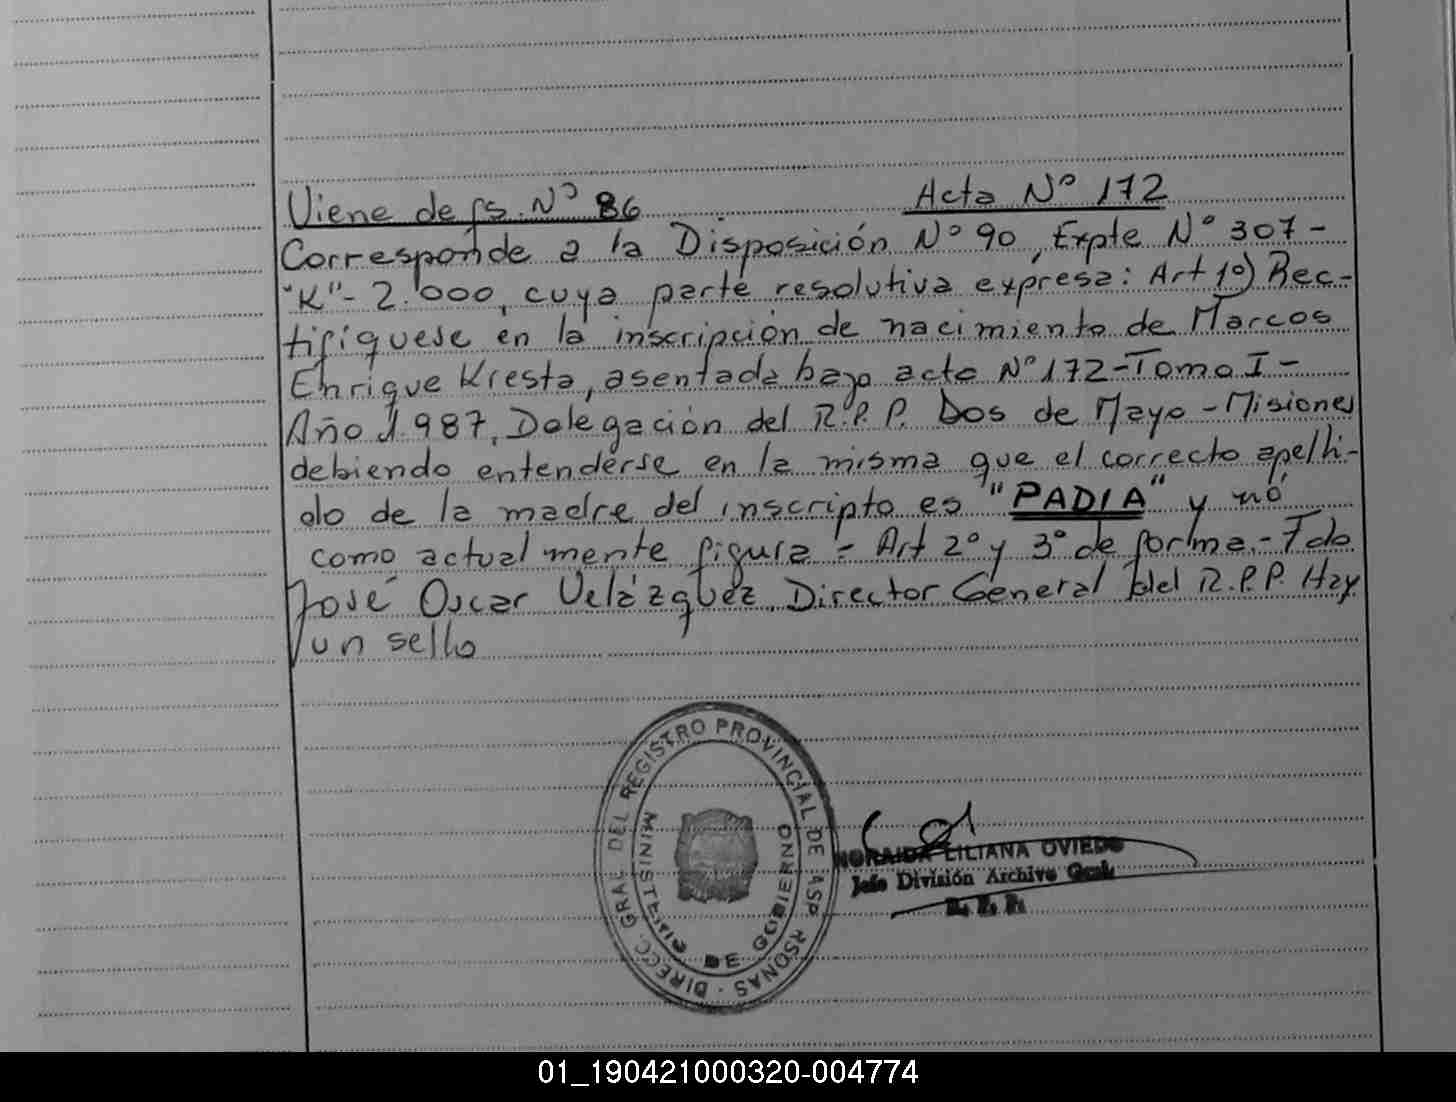 Viene de fs. Nº 86
Acta Nº 172
Corresponde a la Disposición Nº 90, Expte Nº 307-
"K"- 2.000, cuya parte resolutiva expresa: Art 1º) Rec-
tifíquese en la inscripción de nacimiento de Marcos
Enrique Kresta, asentada bajo acta Nº 172-Tomo I-
Año 1.987, Delegación del R.P.P. Dos de Mayo - Misiones
debiendo entenderse en la misma que el correcto apelli-
do de la madre del inscripto es "PADIA" y nó
como actualmente figura - Art 2º y 3º de forma.- Fdo
José Oscar Velázquez, Director General del R.P.P. Hay
un sello
DIRECC. GRAL DEL REGISTRO PROVINCIAL DE
MINISTERIO DE GOBIERNO
NORAIDA LILIANA OVIEDO
Jefe División Archivo Gral.
R. P. P.
01_190421000320-004774